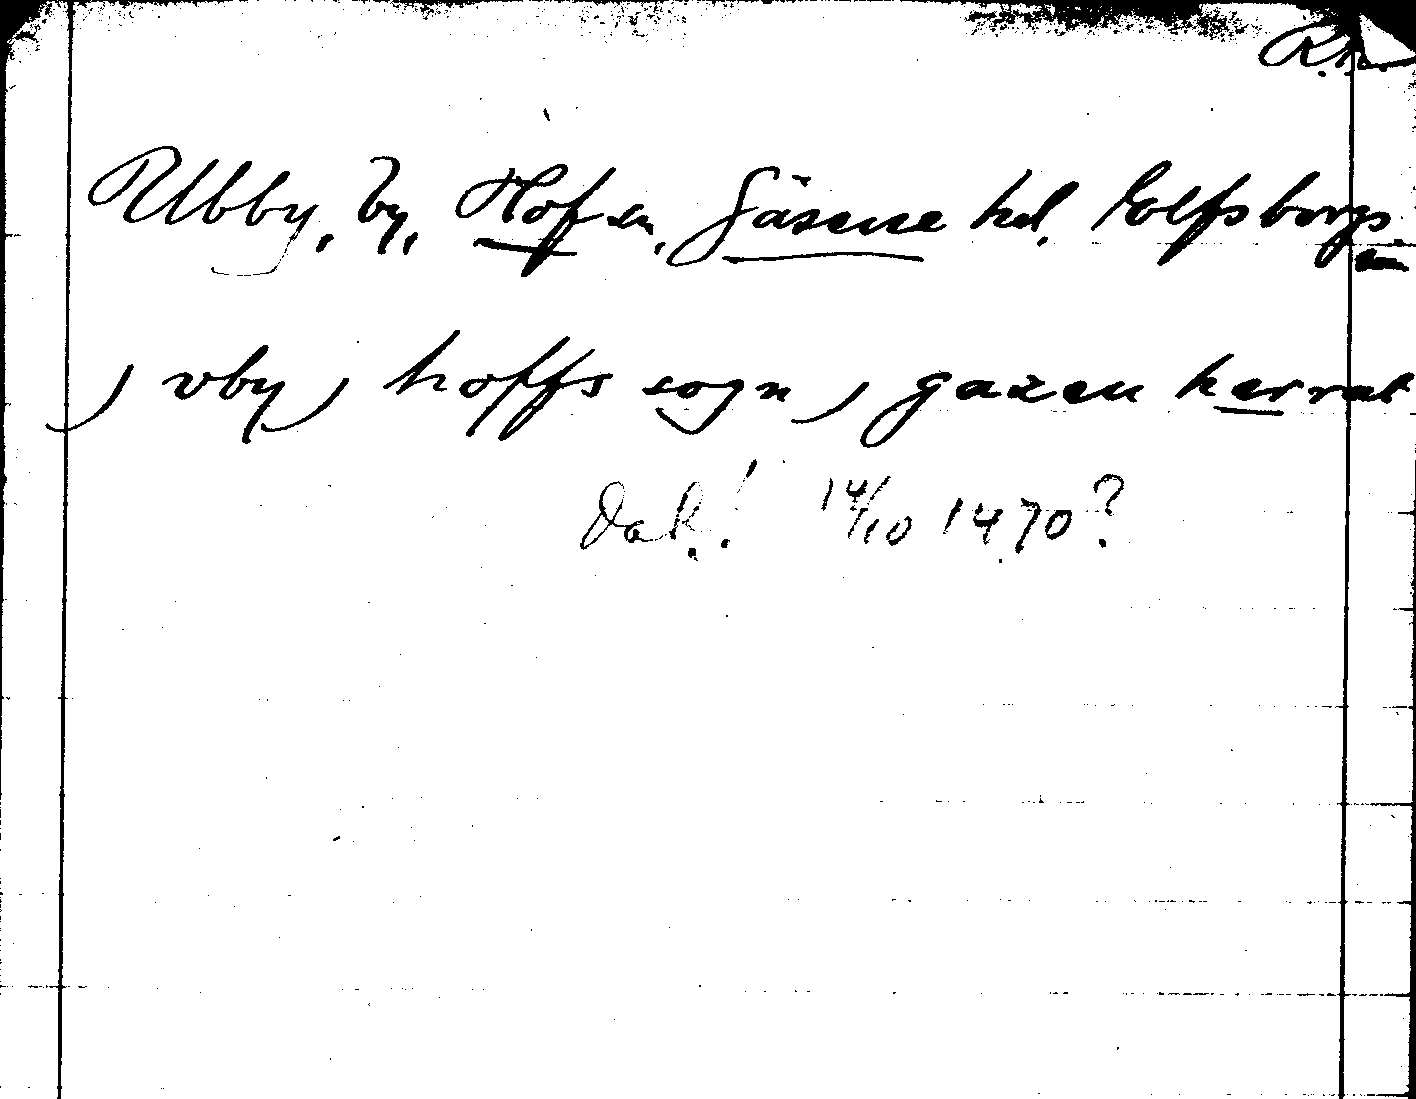 R.A.
Ubby, by, Hof sn, Gäsene hd. Elfsborgs
län
, vby, hoffs sogn, gazen herrat
Dat.! 14/10 1470?